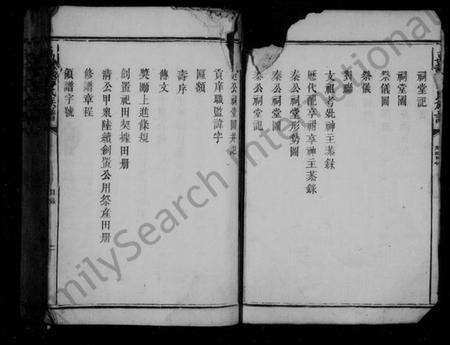 祠堂記
祠堂圖
祭儀圖
祭儀
對聯
支祖考妣神主基錄
歷代配享祔享神主基錄
秦公祠堂形勢圖
秦公祠堂圖
秦公祠堂記
公祠堂圖
貢庠職監諱字
匾額
壽序
傳文
獎勵上進條規
創置祀田契據田册
清公甲與陸續創置公用祭產田册
修譜章程
領譜字號
FamilySearch International